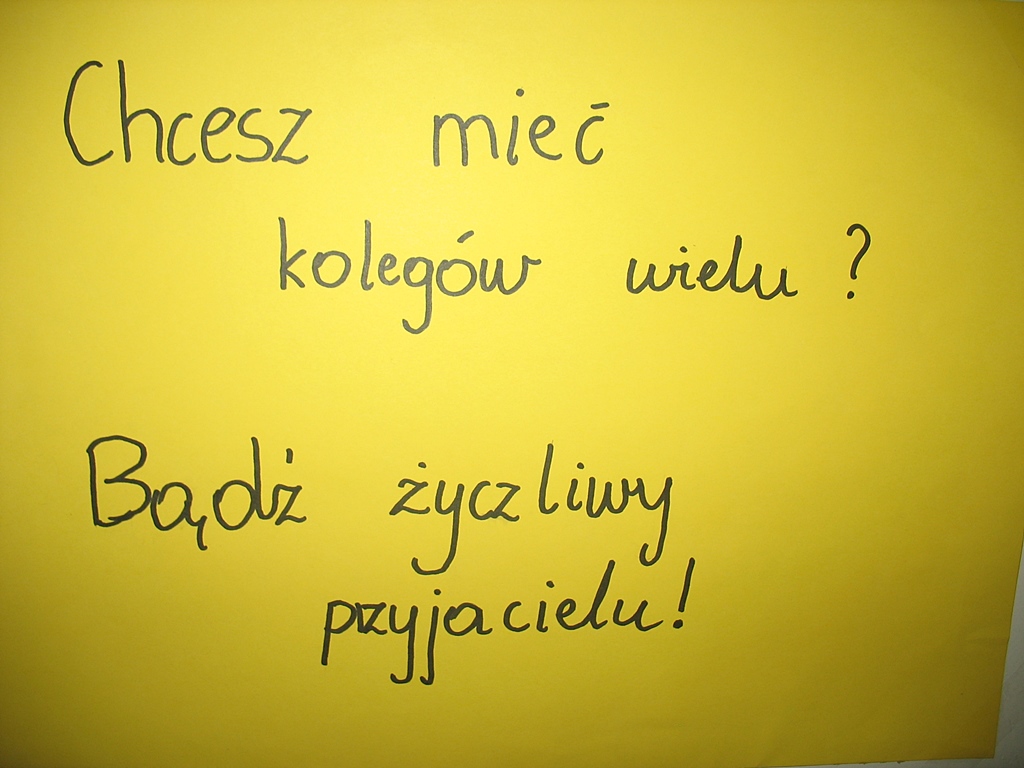 Chcesz mieć
kolegów wielu ?
Bądź życzliwy
przyjacielu!